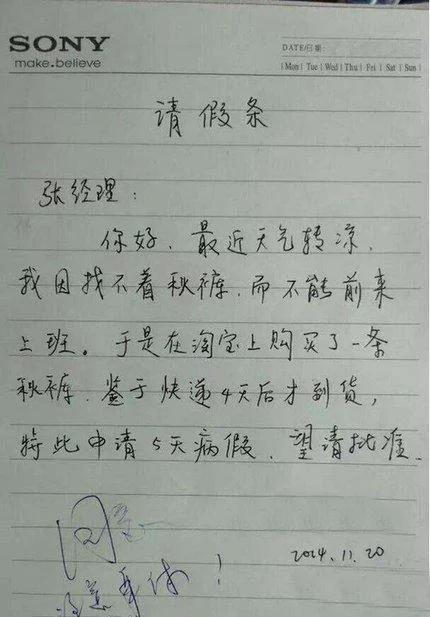 SONY
make.believe
DATE/日期
| Mon | Tue | Wed | Thu | Fri | Sat | Sun |
请假条
张经理：
你好，最近天气转凉，
我因找不着秋裤，而不能前来
上班。于是在淘宝上购买了一条
秋裤，鉴于快递4天后才到货，
特此申请5天病假，望请批准。
同意
注意身体！
2014.11.20